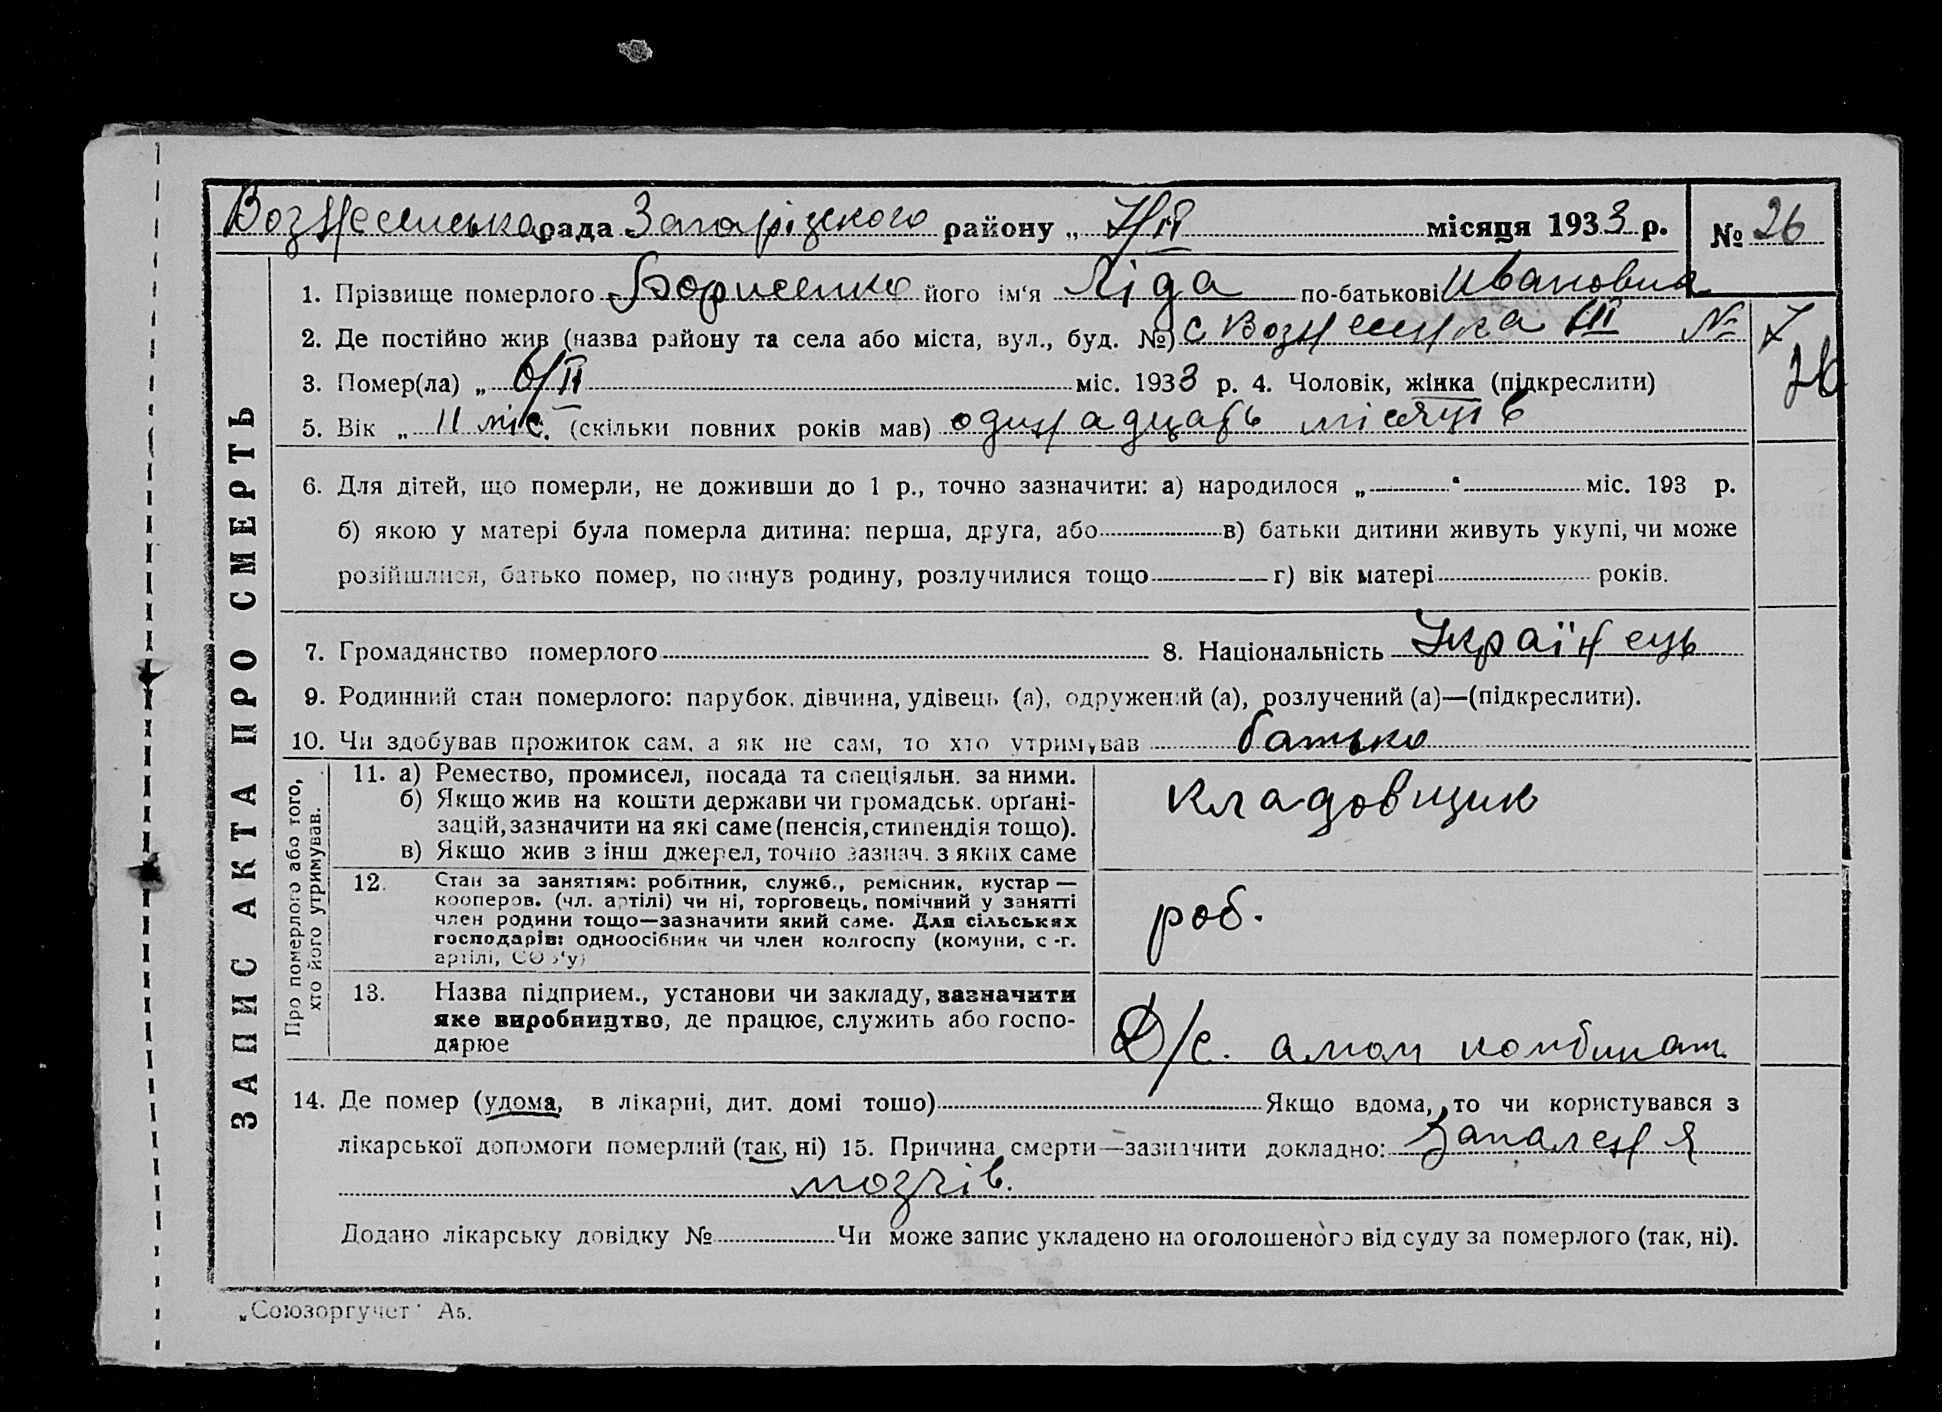 Вознесенська рада Запоріжского району „ 7/ІІ місяця 1933 р. № 26
1. Прізвище померлого Борисенко його ім'я Ліда по-батькові Ивановна
2. Де постійно жив (назва району та села або міста, вул., буд. №) с Вознесенка ІІІ №
3. Помер(ла) „ 6/ІІ міс. 1933 р. 4. Чоловік, жінка (підкреслити)
5. Вік „ 11 міс. (скільки повних років мав) одинадцать місяців
6. Для дітей, що померли, не доживши до 1 р., точно зазначити: а) народилося „ " міс. 193 р.
б) якою у матері була померла дитина: перша, друга, або в) батьки дитини живуть укупі, чи може
розійшлися, батько помер, покинув родину, розлучилися тощо г) вік матері років.
7. Громадянство померлого 8. Національність Українець
9. Родинний стан померлого: парубок, дівчина, удівець (а), одружений (а), розлучений (а)—(підкреслити).
10. Чи здобував прожиток сам, а як не сам, то хто утримував батько
ЗАПИС АКТА ПРО СМЕРТЬ
Про померлого або того,
хто його утримував.
11. а) Ремество, промисел, посада та спеціяльн. за ними.
б) Якщо жив на кошти держави чи громадськ. орґані-
зацій, зазначити на які саме (пенсія, стипендія тощо).
в) Якщо жив з інш джерел, точно зазнач. з яких саме
кладовщик
12. Стан за заняттям: робітник, служб., ремісник, кустар —
кооперов. (чл. артілі) чи ні, торговець, помічний у занятті
член родини тощо—зазначити який саме. Для сільських
господарів: одноосібник чи член колгоспу (комуни, с -г.
артілі, СОЗ'у)
роб.
13. Назва підприєм., установи чи закладу, зазначити
яке виробництво, де працює, служить або госпо-
дарює
Д/с. алюм комбинат
14. Де помер (удома, в лікарні, дит. домі тошо) Якщо вдома, то чи користувався з
лікарської допомоги померлий (так, ні) 15. Причина смерти—зазначити докладно: Запаленя
мозгів.
Додано лікарську довідку № Чи може запис укладено на оголошеного від суду за померлого (так, ні).
„Союзоргучет" А5.